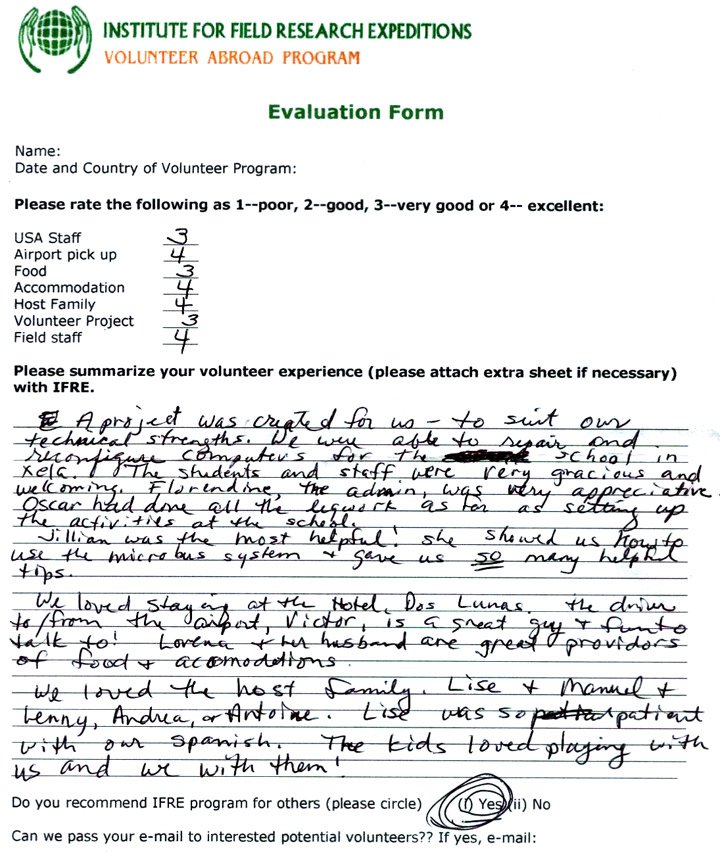 INSTITUTE FOR FIELD RESEARCH EXPEDITIONS
VOLUNTEER ABROAD PROGRAM
Evaluation Form
Name:
Date and Country of Volunteer Program:
Please rate the following as 1--poor, 2--good, 3--very good or 4-- excellent:
USA Staff 3
Airport pick up 4
Food 3
Accommodation 4
Host Family 4
Volunteer Project 3
Field staff 4
Please summarize your volunteer experience (please attach extra sheet if necessary)
with IFRE.
A project was created for us - to suit our
technical strengths. We were able to repair and
reconfigure computers for the school in
Xela. The students and staff were very gracious and
welcoming. Florendine, the admin, was very appreciative.
Oscar had done all the legwork as far as setting up
the activities at the school.
Jillian was the most helpful! She showed us how to
use the microbus system + gave us so many helpful
tips.
We loved staying at the Hotel Dos Lunas. The driver
to/from the airport, Victor, is a great guy + fun to
talk to! Lorena + her husband are great providors
of food + acomodations.
We loved the host family. Lise + Manuel +
Lenny, Andrea, or Antoine. Lise was so patient
with our Spanish. The kids loved playing with
us and we with them!
Do you recommend IFRE program for others (please circle) (i) Yes (ii) No
Can we pass your e-mail to interested potential volunteers?? If yes, e-mail: